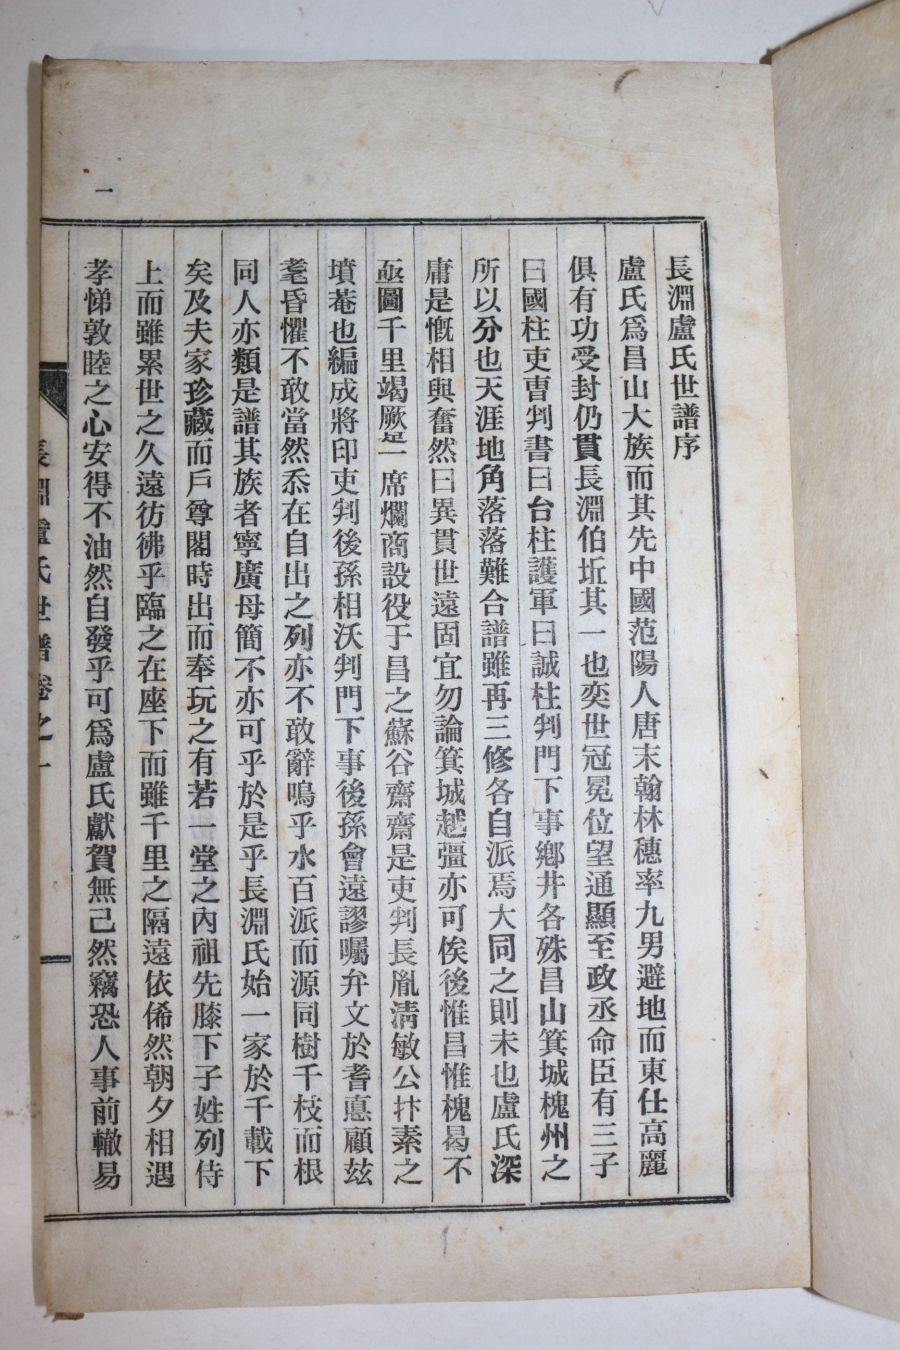 長淵盧氏世譜序
盧氏爲昌山大族而其先中國范陽人唐末翰林穗率九男避地而東仕高麗
俱有功受封仍貫長淵伯坵其一也奕世冠冕位望通顯至政丞命臣有三子
曰國柱吏曺判書曰台柱護軍曰誠柱判門下事鄕井各殊昌山箕城槐州之
所以分也天涯地角落落難合譜雖再三修各自派焉大同之則未也盧氏深
庸是慨相與奮然曰異貫世遠固宜勿論箕城越彊亦可俟後惟昌惟槐曷不
亟圖千里竭厥筵一席爛商設役于昌之蘇谷齋齋是吏判長胤淸敏公抃素之
墳菴也編成將印吏判後孫相沃判門下事後孫會遠謬囑弁文於耆悳顧玆
耄昏懼不敢當然忝在自出之列亦不敢辭嗚乎水百派而源同樹千枝而根
同人亦類是譜其族者寧廣毋簡不亦可乎於是乎長淵氏始一家於千載下
矣及夫家珍藏而戶尊閣時出而奉玩之有若一堂之內祖先膝下子姓列侍
上而雖累世之久遠彷彿乎臨之在座下而雖千里之隔遠依俙然朝夕相遇
孝悌敦睦之心安得不油然自發乎可爲盧氏獻賀無己然竊恐人事前轍易
長淵盧氏世譜卷之一
一